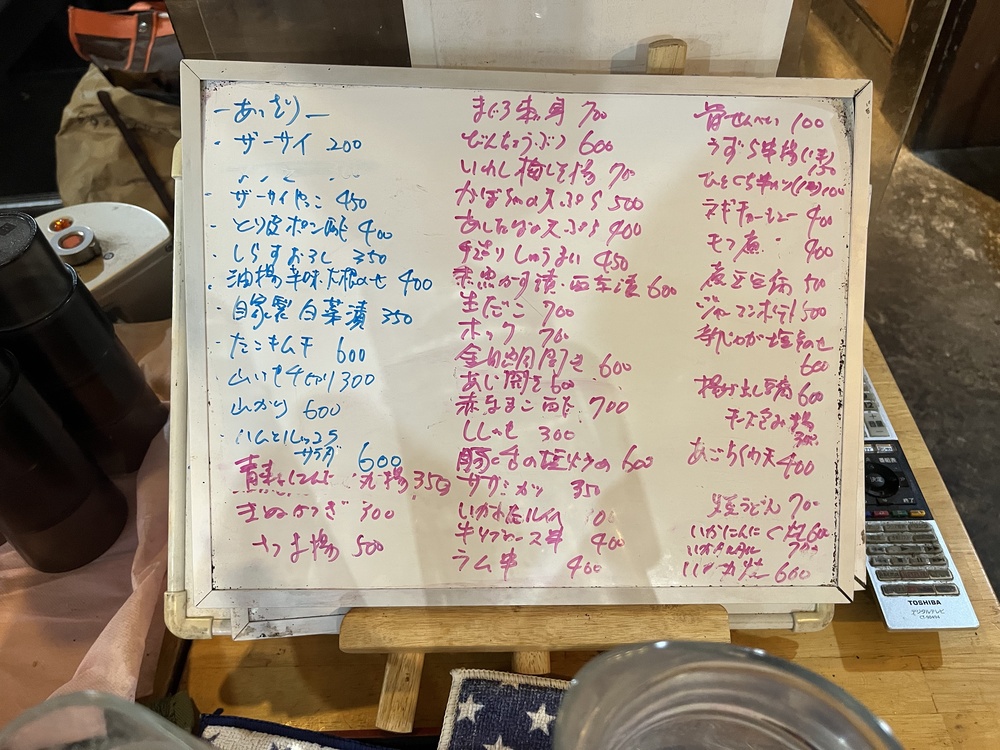 －あっさり－
・ザーサイ 200
・ザーサイやっこ 450
・とり皮ポン酢 400
・しらすおろし 350
・油揚辛味大根のせ 400
・自家製白菜漬 350
・たこキムチ 600
・山いも千切り 300
山かけ 600
・ハムとレタス
サラダ 600
青森にんにく 丸揚 350
きぬかつぎ 300
さつま揚 500
まぐろ 刺身 700
びんちょうぶつ 600
いわし梅しそ揚 70
かぼちゃ天ぷら 500
あしたばの天ぷら 400
手造りしゅうまい 450
赤魚かす漬・西京漬 600
生だこ 700
ホッケ 700
金目鯛開き 600
あじ開き 600
赤なまこ酢 700
ししゃも 300
豚と舌の塩炒め 600
ササミカツ 350
400
ラム串 400
骨せんべい 100
うずら串揚(1本)
150
ひとくち串カツ(1本)100
ネギチャーシュー 400
モツ煮 400
煮豆腐 500
ジャーマンポテト 500
新じゃが塩辛のせ
600
揚げ出し豆腐 600
チーズ包み揚
300
あごちくわ天 400
焼うどん 700
いかにんにく焼 600
700
いか丸焼 600
TOSHIBA
デジタルテレビ
CT-90494